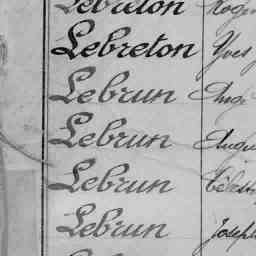 Lebreton
Lebreton Yves
Lebrun
Lebrun
Lebrun
Lebrun Joseph